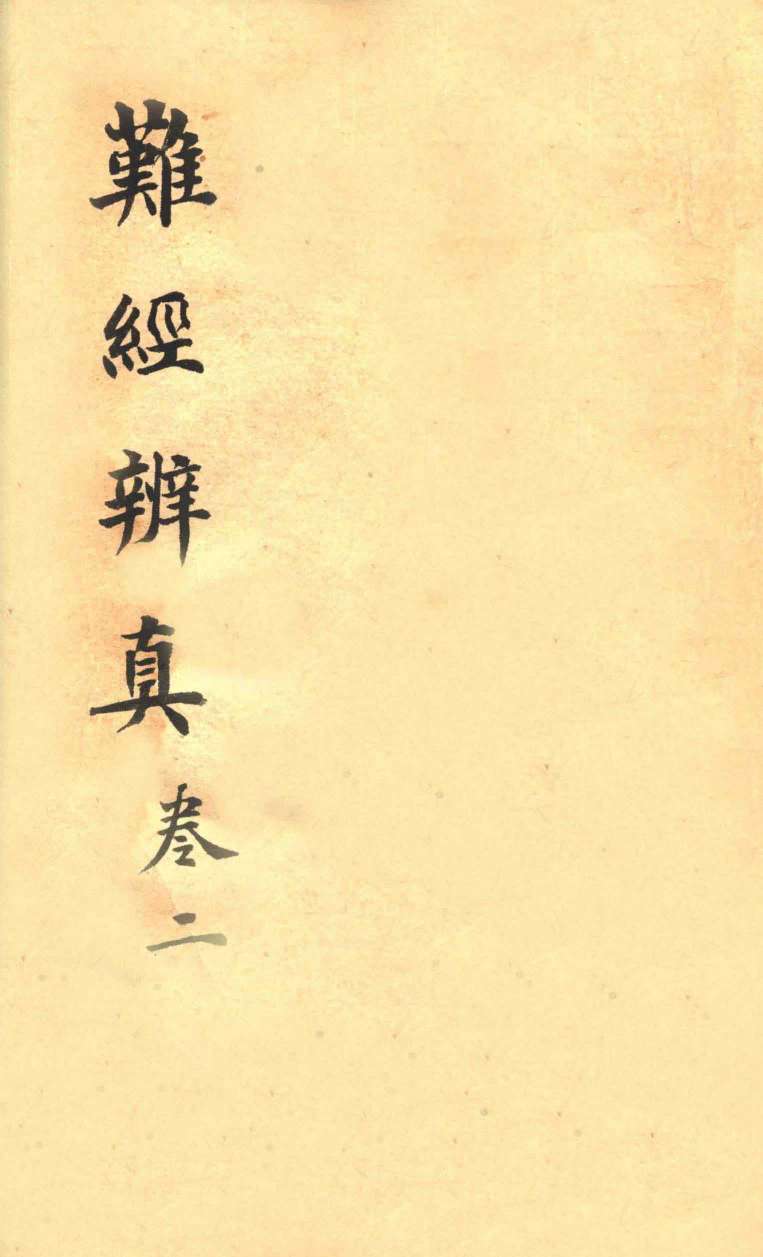 難經辨真 卷二